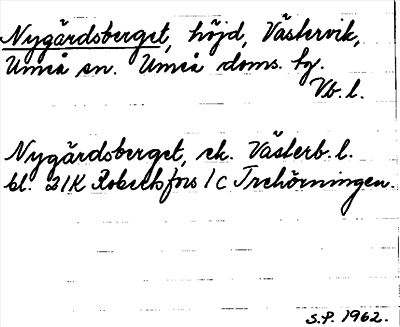 Nygårdsberget, höjd, Västervik,
Umeå sn. Umeå doms. hg.
Vb. l.
Nygårdsberget, ek. Västerb. l.
bl. 21K Robertsfors 1c Trehörningen.
S.P. 1962.